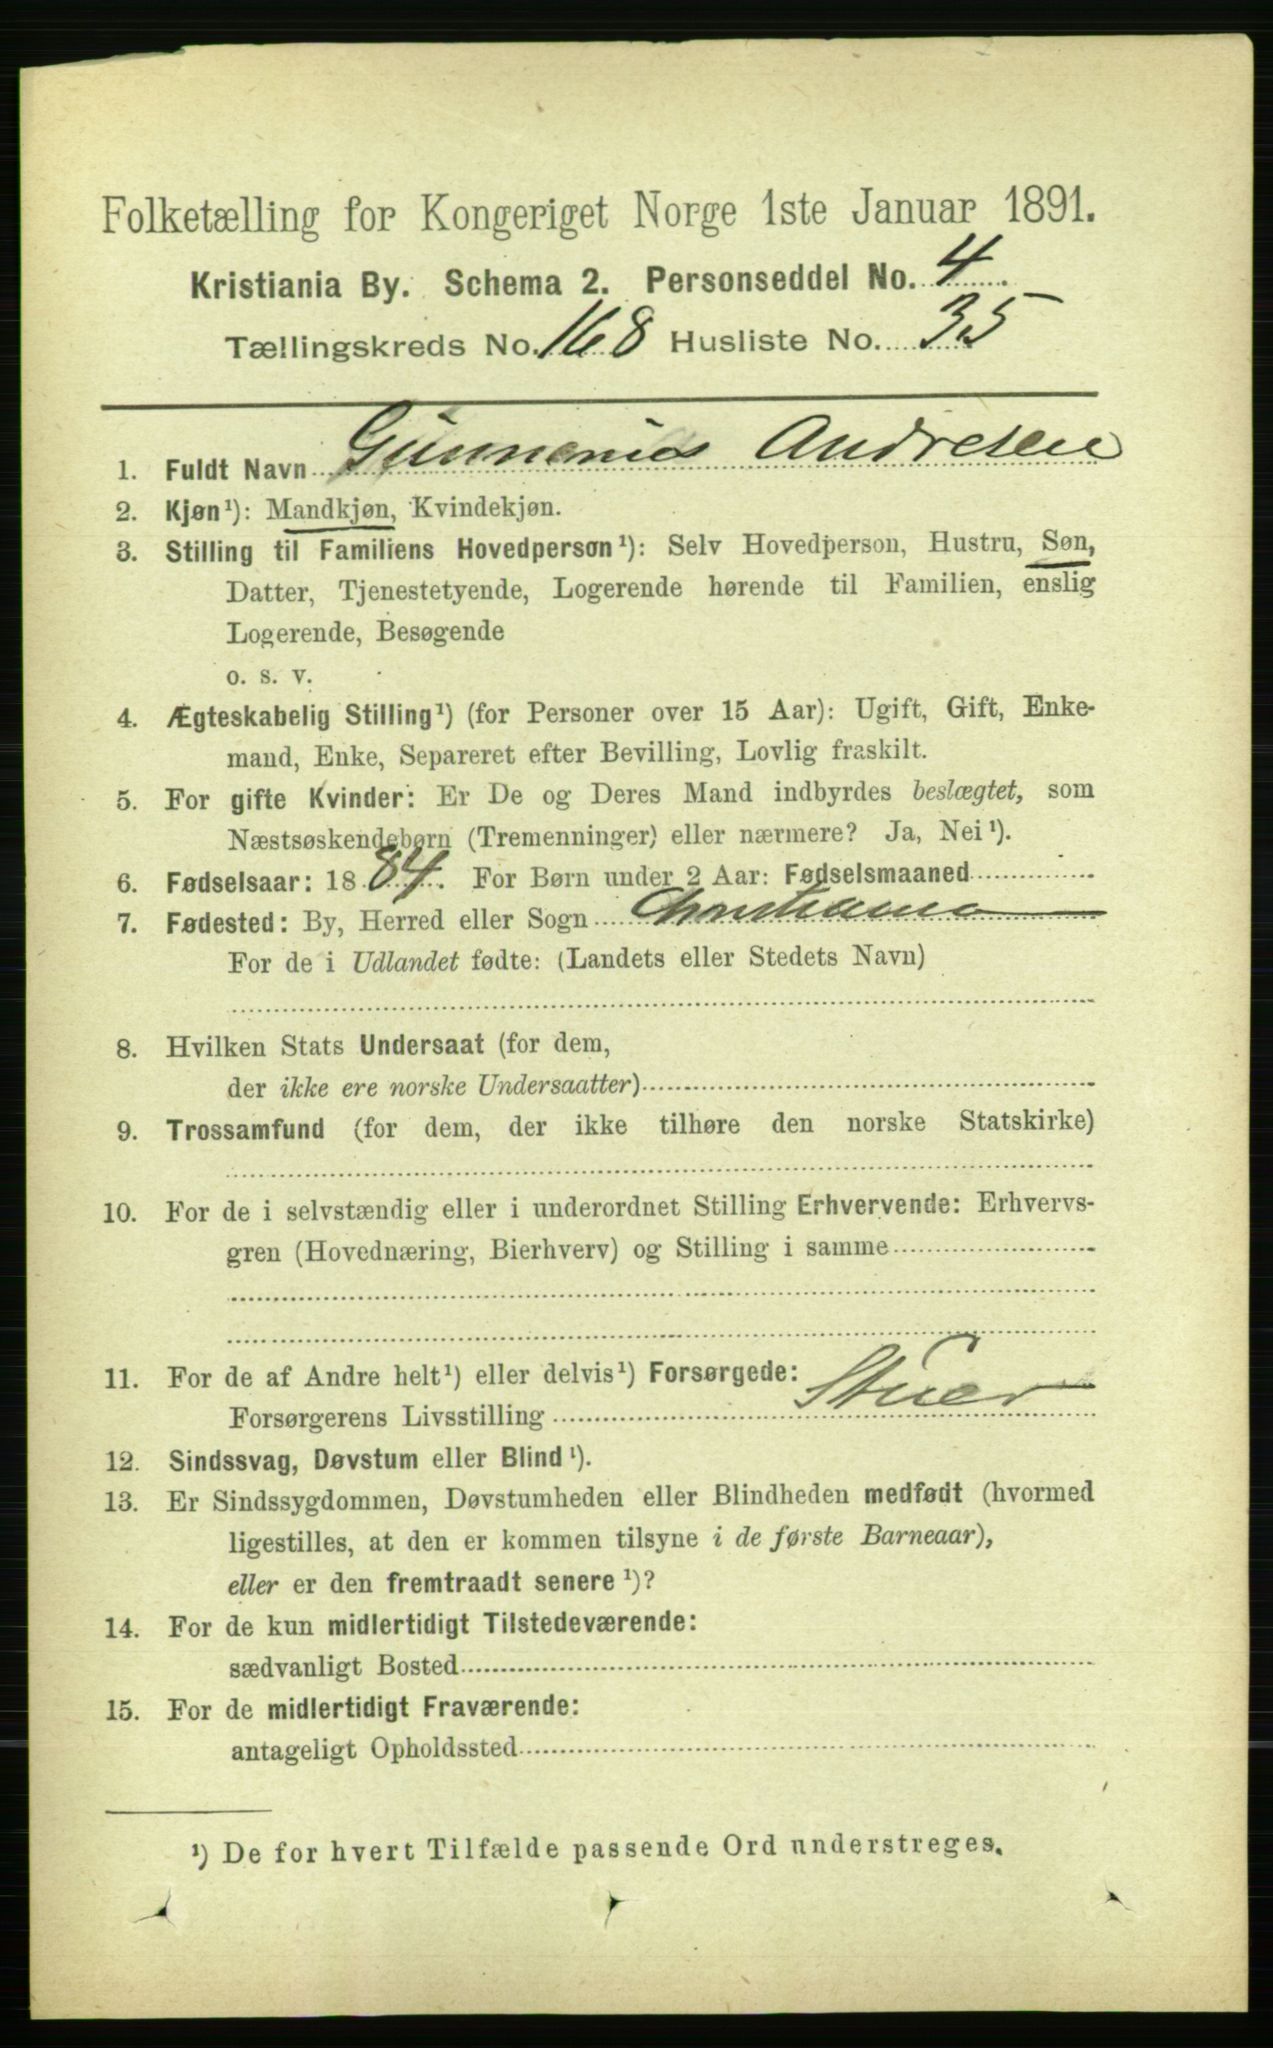 Folketælling for Kongeriget Norge 1ste Januar 1891.
Kristiania By. Schema 2. Personseddel No. 4
Tællingskreds No. 168 Husliste No. 35
1. Fuldt Navn Gunnerius Andresen
2. Kjøn¹): Mandkjøn, Kvindekjøn.
3. Stilling til Familiens Hovedperson¹): Selv Hovedperson, Hustru, Søn,
Datter, Tjenestetyende, Logerende hørende til Familien, enslig
Logerende, Besøgende
o. s. v.
4. Ægteskabelig Stilling¹) (for Personer over 15 Aar): Ugift, Gift, Enke-
mand, Enke, Separeret efter Bevilling, Lovlig fraskilt.
5. For gifte Kvinder: Er De og Deres Mand indbyrdes beslægtet, som
Næstsøskendebørn (Tremenninger) eller nærmere? Ja, Nei¹).
6. Fødselsaar: 1884. For Børn under 2 Aar: Fødselsmaaned
7. Fødested: By, Herred eller Sogn Christiania
For de i Udlandet fødte: (Landets eller Stedets Navn)
8. Hvilken Stats Undersaat (for dem,
der ikke ere norske Undersaatter)
9. Trossamfund (for dem, der ikke tilhøre den norske Statskirke)
10. For de i selvstændig eller i underordnet Stilling Erhvervende: Erhvervs-
gren (Hovednæring, Bierhverv) og Stilling i samme
11. For de af Andre helt¹) eller delvis¹) Forsørgede:
Forsørgerens Livsstilling Stuer
12. Sindssvag, Døvstum eller Blind¹).
13. Er Sindssygdommen, Døvstumheden eller Blindheden medfødt (hvormed
ligestilles, at den er kommen tilsyne i de første Barneaar),
eller er den fremtraadt senere¹)?
14. For de kun midlertidigt Tilstedeværende:
sædvanligt Bosted
15. For de midlertidigt Fraværende:
antageligt Opholdssted
¹) De for hvert Tilfælde passende Ord understreges.